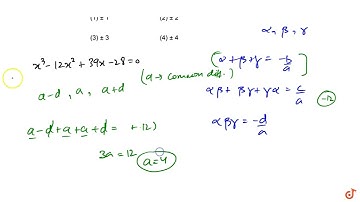 (1) ± 1
(2) ± 2
(3) ± 3
(4) ± 4
x³-12x²+39x-28=0
a-d, a, a+d
(a → common dif.)
a-d+a+a+d = +12)
3a=12
a=4
α, β, γ
(α+β+γ = -b/a)
αβ + βγ+γα = c/a
-12
αβγ = -d/a